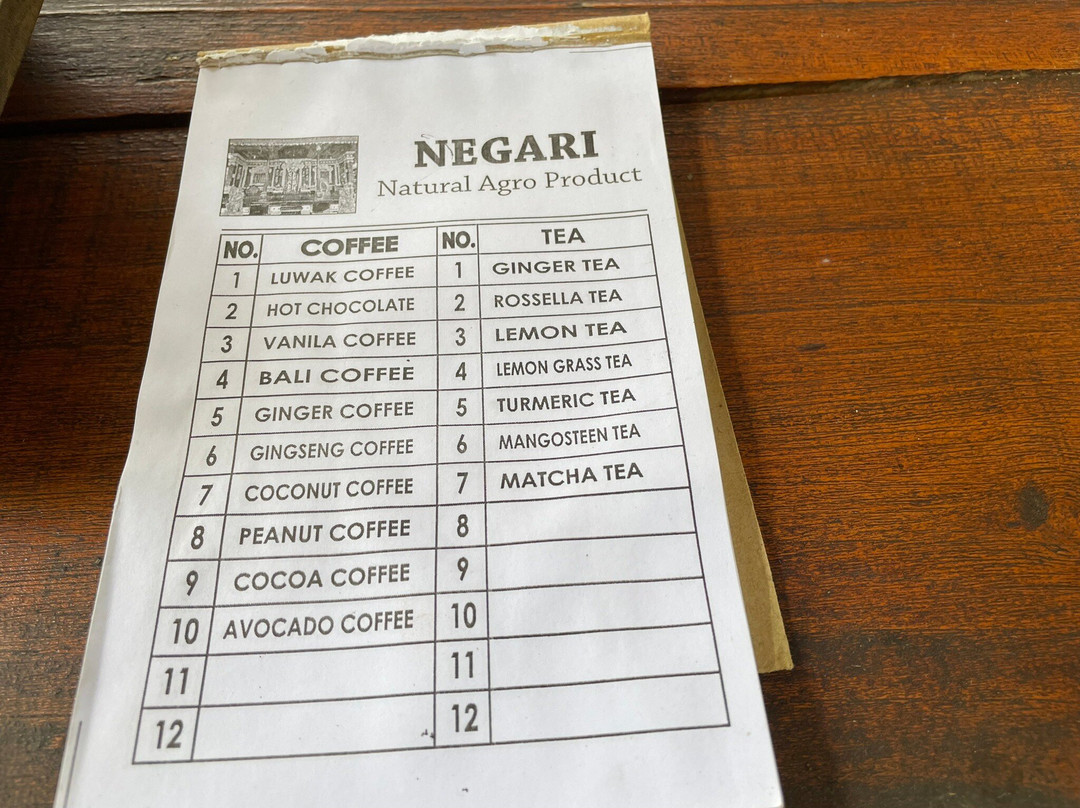 NEGARI
Natural Agro Product
NO. COFFEE NO. TEA
1 LUWAK COFFEE 1 GINGER TEA
2 HOT CHOCOLATE 2 ROSSELLA TEA
3 VANILA COFFEE 3 LEMON TEA
4 BALI COFFEE 4 LEMON GRASS TEA
5 GINGER COFFEE 5 TURMERIC TEA
6 GINGSENG COFFEE 6 MANGOSTEEN TEA
7 COCONUT COFFEE 7 MATCHA TEA
8 PEANUT COFFEE 8
9 COCOA COFFEE 9
10 AVOCADO COFFEE 10
11 11
12 12